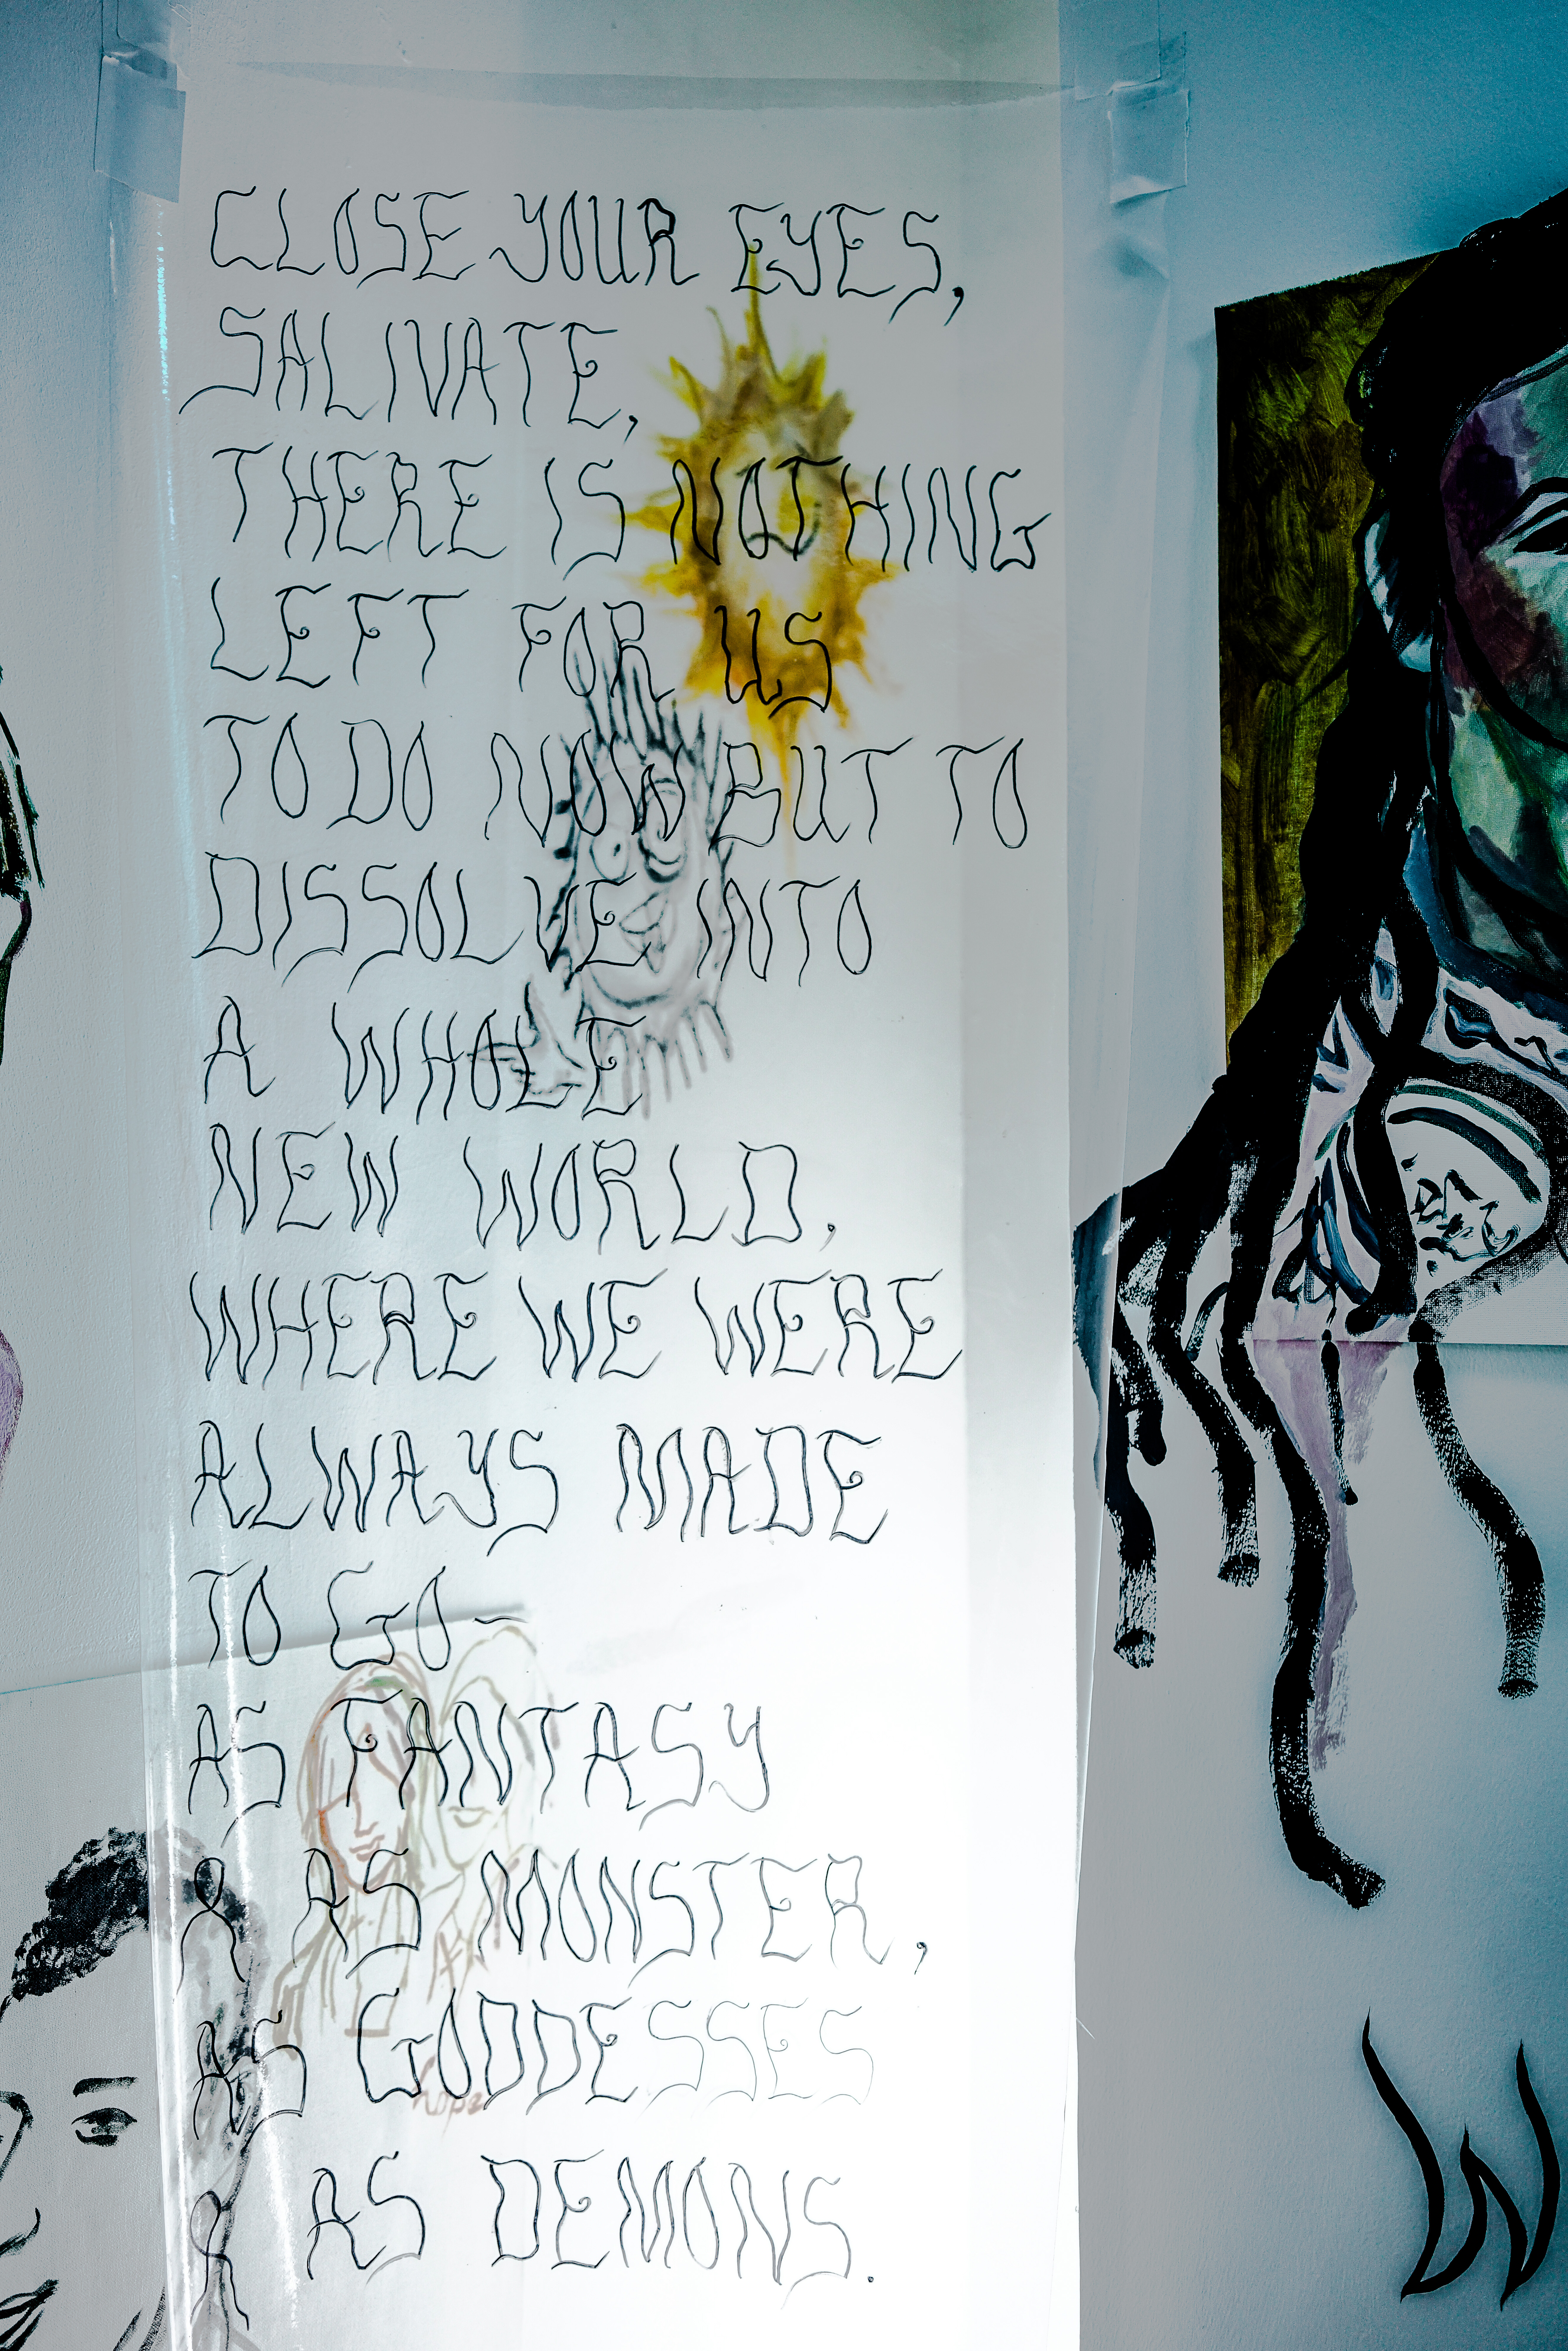 CLOSE YOUR EYES,
SALIVATE,
THERE IS NOTHING
LEFT FOR US
TO DO NOW BUT TO
DISSOLVE INTO
A WHOLE
NEW WORLD.
WHERE WE WERE
ALWAYS MADE
TO GO-
AS FANTASY
& AS MONSTER,
AS GODDESSES
& AS DEMONS.
hope
W